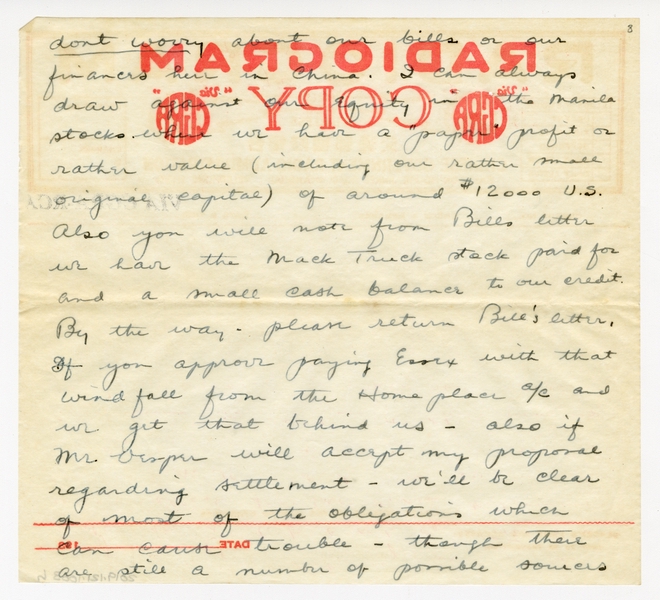 8
dont worry about our bills or our
RADIOGRAM
finances here in China. I can always
"Via RCA" COPY "Via RCA"
draw against our equity in the Manila
stocks where we have a "paper" profit or
rather value (including our rather small
original capital) of around $12000 U.S.
Also you will note from Bills letter
we have the Mack Truck stock paid for
and a small cash balance to our credit.
By the way - please return Bill's letter.
If you approve paying Essex with that
windfall from the Home place a/c and
we get that behind us - also if
Mr. Vesper will accept my proposal
regarding settlement - we'll be clear
of most of the obligations which
DATE 193
can cause trouble - though there
are still a number of possible sources